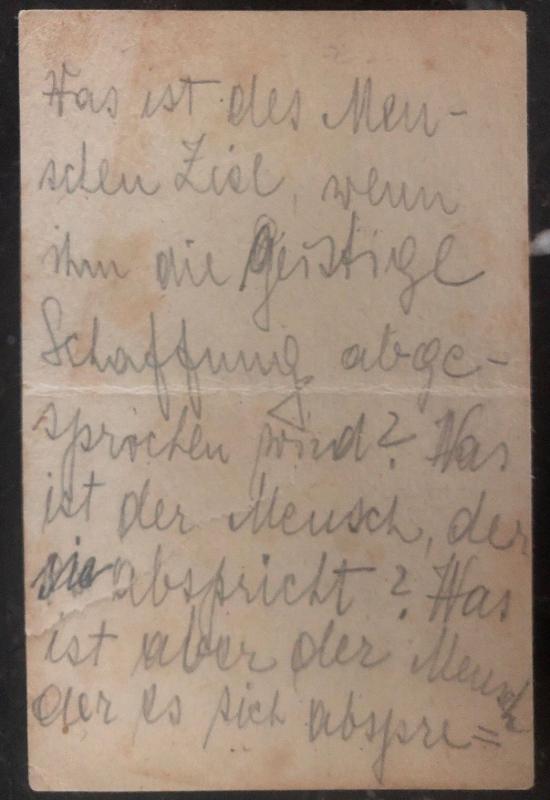 Was ist des Men-
schen Ziel, wenn
ihm die geistige
Schaffung abge-
sprochen wird? Was
ist der Mensch, der
sie abspricht? Was
ist aber der Mensch
der es sich abspre=